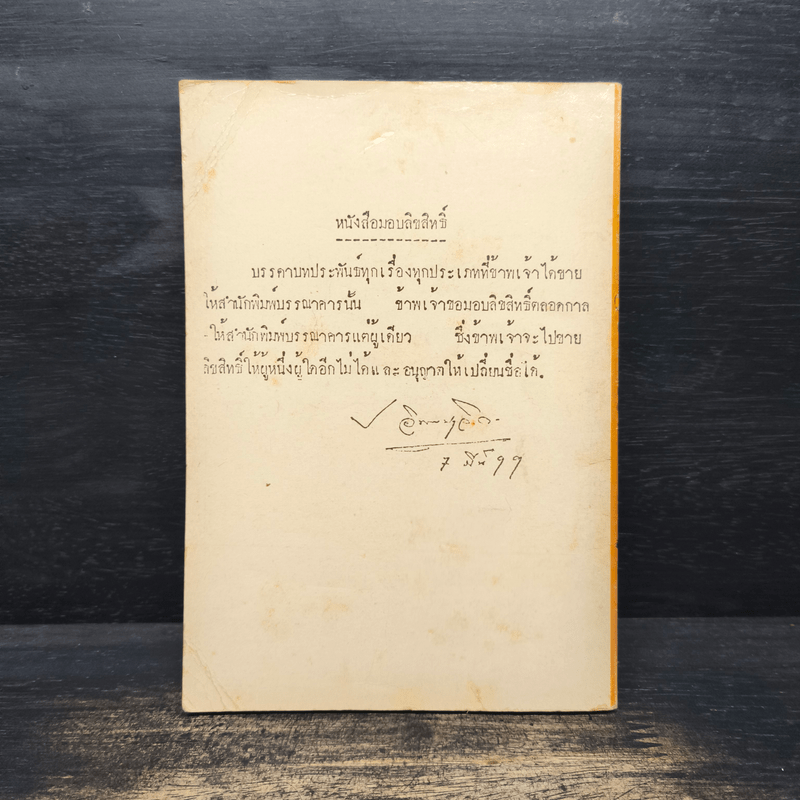 หนังสือมอบลิขสิทธิ์
บรรดาบทประพันธ์ทุกเรื่องทุกประเภทที่ข้าพเจ้าได้ขาย
ให้สำนักพิมพ์บรรณาคารนั้น ข้าพเจ้าขอมอบลิขสิทธิ์ตลอดกาล
-ให้สำนักพิมพ์บรรณาคารแต่ผู้เดียว ซึ่งข้าพเจ้าจะไปขาย
ลิขสิทธิ์ให้ผู้หนึ่งผู้ใดอีกไม่ได้และอนุญาตให้เปลี่ยนชื่อได้.
ป. อินทรปาลิต
๗ มีน ๑๑